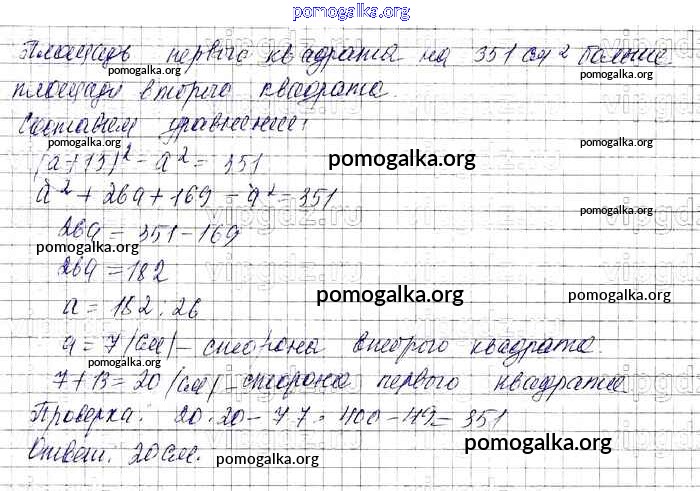 pomogalka.org
Площадь первого квадрата на 351 см2 больше
pomogalka.org pomogalka.org
площади второго квадрата.
Составим уравнение:
pomogalka.org
(a+13)2 - a2 = 351
pomogalka.org
a2 + 26a + 169 - a2 = 351
pomogalka.org
26a = 351 - 169
pomogalka.org
26a = 182
pomogalka.org pomogalka.org
a = 182 : 26
a = 7 (см) - сторона второго квадрата.
pomogalka.org
7 + 13 = 20 (см) - сторона первого квадрата
Проверка: 20·20 - 7·7 = 400 - 49 = 351
pomogalka.org
Ответ: 20 см.
pomogalka.org